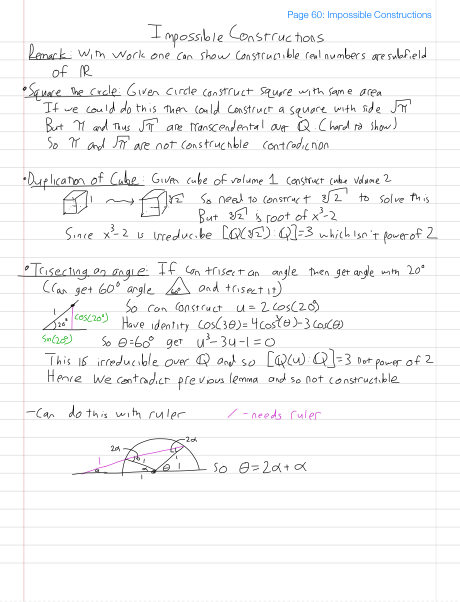 Page 60: Impossible Constructions
Impossible Constructions
Remark: With work one can show constructible real numbers are subfield
of ℝ
• Square the circle: Given circle construct square with same area
If we could do this then could construct a square with side √π
But π and thus √π are transcendental over Q (hard to show)
So π and √π are not constructible contradiction
• Duplication of Cube: Given cube of volume 1 construct cube volume 2
1 ∛2 So need to construct ∛2 to solve this
But ∛2 is root of x³-2
Since x³-2 is irreducible [Q(∛2):Q]=3 which isn't power of 2
• Trisecting an angle: If can trisect an angle then get angle with 20°
(Can get 60° angle 60° and trisect it)
1 20° cos(20°) So can construct u = 2cos(20°)
sin(20°) Have identity cos(3θ) = 4cos³(θ)-3cos(θ)
So θ=60° get u³-3u-1=0
This is irreducible over Q and so [Q(u):Q]=3 not power of 2
Hence we contradict previous lemma and so not constructible
- Can do this with ruler / - needs ruler
2α 2α
1 1 1 1
α α θ 1 So θ=2α+α